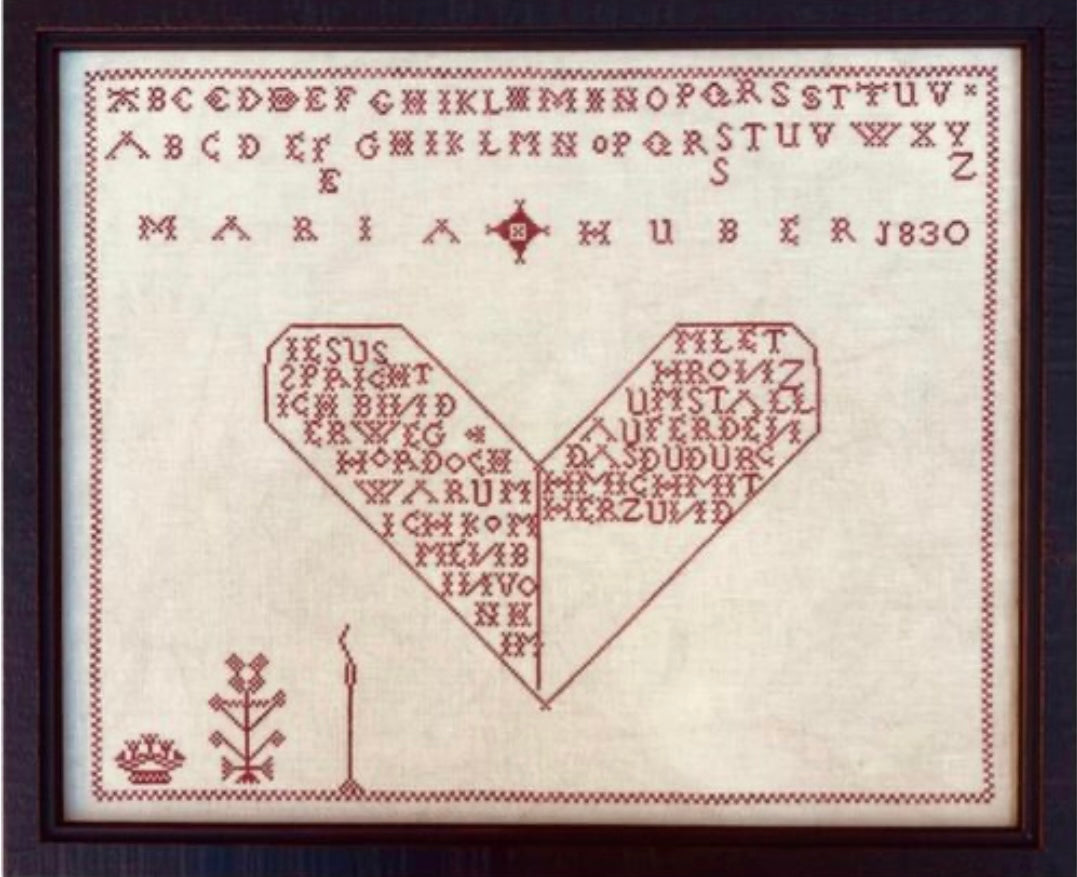 A B C C D D E F G H I K L M M N N O P Q R S S T T U V
A B C D E F G H I K L M N O P Q R S T U V W X Y
E S Z
MARIA HUBER 1830
IESUS
SPAICHT
ICH BIND
ERWEG
HORDOCH
WARUM
ICHKOM
MEINB
INVO
NH
IM
MLET
HRONZ
UMSTALL
AUFERDEN
DASDUDURC
HMICHMIT
HERZUND